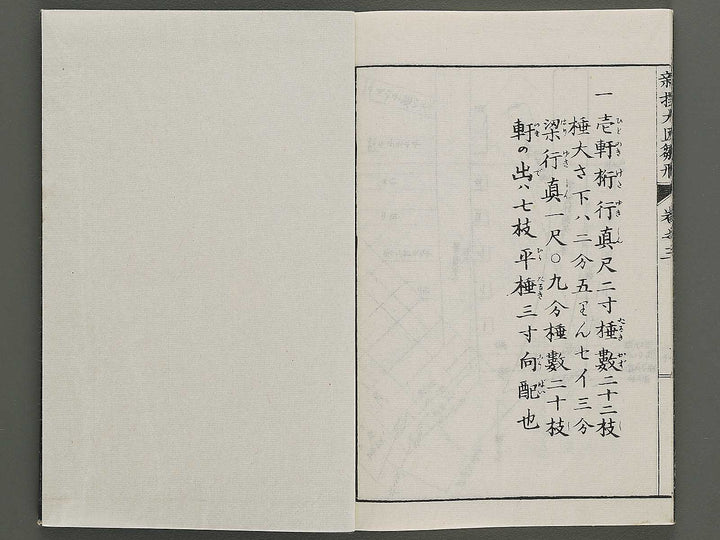 新撰大匠雛形 巻之三
一 壱軒桁行真尺二寸棰數二十二枝
棰大さ下ハ二分五りんセイ三分
梁行真一尺〇九分棰數二十枝
軒の出ハ七枝平棰三寸向配也